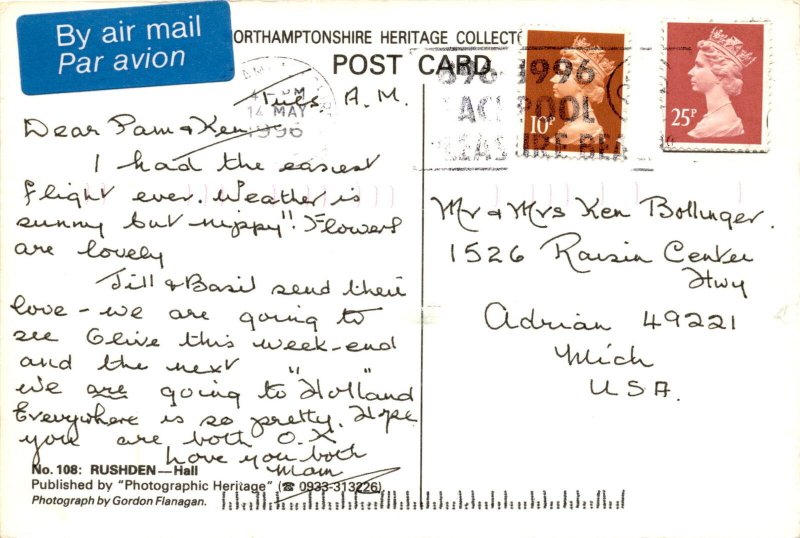 By air mail
Par avion
ORTHAMPTONSHIRE HERITAGE COLLECT
POST CARD
14 MAY
1996
1996
POOL
10P
25P
Tues. A.M.
Dear Pam & Ken
I had the easiest
flight ever. Weather is
sunny but nippy". Flowers
are lovely
Jill & Basil send their
love - we are going to
see Olive this week-end
and the next " "
we are going to Holland
Everywhere is so pretty. Hope
you are both O.K
Love you both
Mam
Mr & Mrs Ken Bollinger.
1526 Raisin Center
Hwy
Adrian 49221
Mich
USA.
No. 108: RUSHDEN—Hall
Published by "Photographic Heritage" (☎ 0933-313226).
Photograph by Gordon Flanagan.